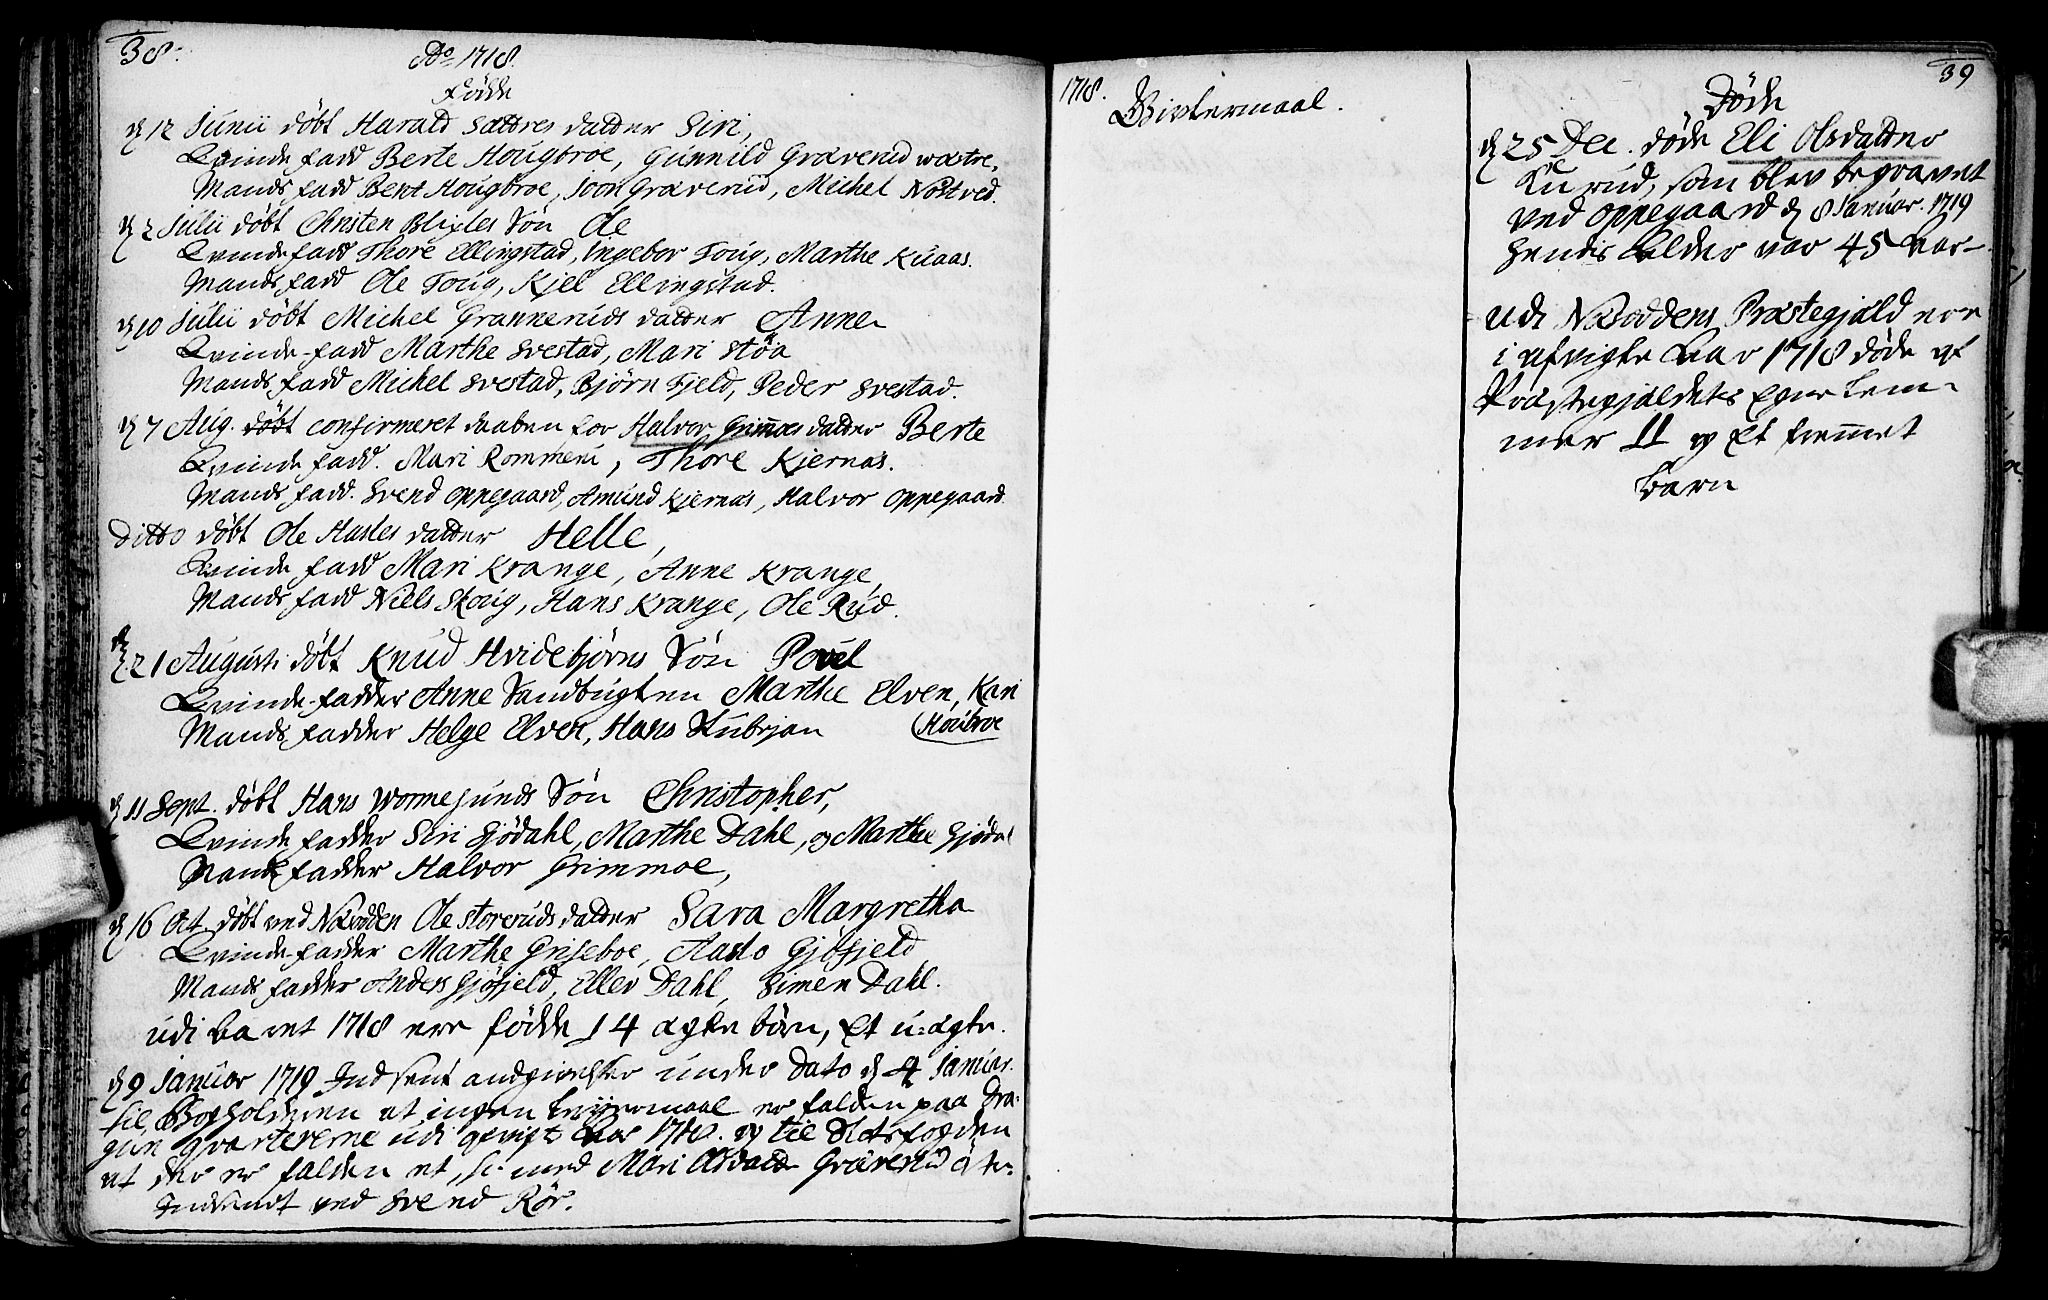 38.
Ao 1718.
Födde
d 12 Junii döbt Harald Sættres datter Siri,
Qvinde fadd Berte Hougbroe, Gunnild Graverud wæstre,
Mands fadd Bent Hougbroe, Joon Graverud, Michel Nostved.
d 2 Julii döbt Christen Blylés Sön Ole
Qvinde fadd Thore Ellingstad, Ingebor Toug, Marthe Kuaas.
Mands fadd Ole Toug, Kjel Ellingstad.
d 10 Julii döbt Michel Granneruds datter Anne
Qvinde-fadd Marthe Svestad, Mari Stöa
Mands fadd Michel Svestad, Björn Fjeld, Peder Svestad.
d 7 Aug. döbt confirmeret daaben for Halvor Grimoes datter Berte
Qvinde fadd. Mari Rommeni, Thore Kjernas.
Mands fadd. Svend Oppegaard, Amund Kjernas, Halvor Oppegaard
Ditto döbt Ole Hasles datter Helle,
Qvinde fadd Mari Krange, Anne Krange,
Mands fadd Niels Skoug, Hans Krange, Ole Rud.
d 21 Augusti döbt Knud Hvidebjörns Sön Povel
Qvinde-fadder Anne Sandbugten Marthe Elven, Kari
Mands fadder Helge Elven, Hans Stubrjan (Houbroe
d 11 Sept. döbt Hans Wormesunds Sön Christopher,
Qvinde fadder Siri Gjödahl, Marthe Dahl, og Marthe Gjödal
Mands fadder Halvor Grimmoe,
d 16 Oct. döbt ved Næsodden Ole Storeruds datter Sara Margretha
Qvinde-fadder Marthe Griseboe, Aaslo Gjöfjeld
Mands fadder Anders Gjöfjeld, Ellev Dahl, Simen Dahl.
udi Aaret 1718 ere födde 14 ægte börn, Et u-ægte.
d 9 Januar 1719 Indsent andgivelser under Dato d 4 Januar.
til Boeholderen at ingen leyermaal er falden paa Dra-
gun qvartererne udi afvigt Aar 1718. og til Slotsfogden
at der er falden et, med Mari Graverud
Indsendt ved Svend Rör.
1718.
Givtermaal.
39
Döde
d 25 Dec. döde Eli Olsdatter
Kurud, som blev begravet
ved Oppegaard d 8 Januar. 1719
Hendis Alder var 45 Aar
udi Næsoddens Præstegjæld ere
i afvigte Aar 1718 döde af
Præstegjældets egne Lem-
mer 11 og Et fremmet
barn